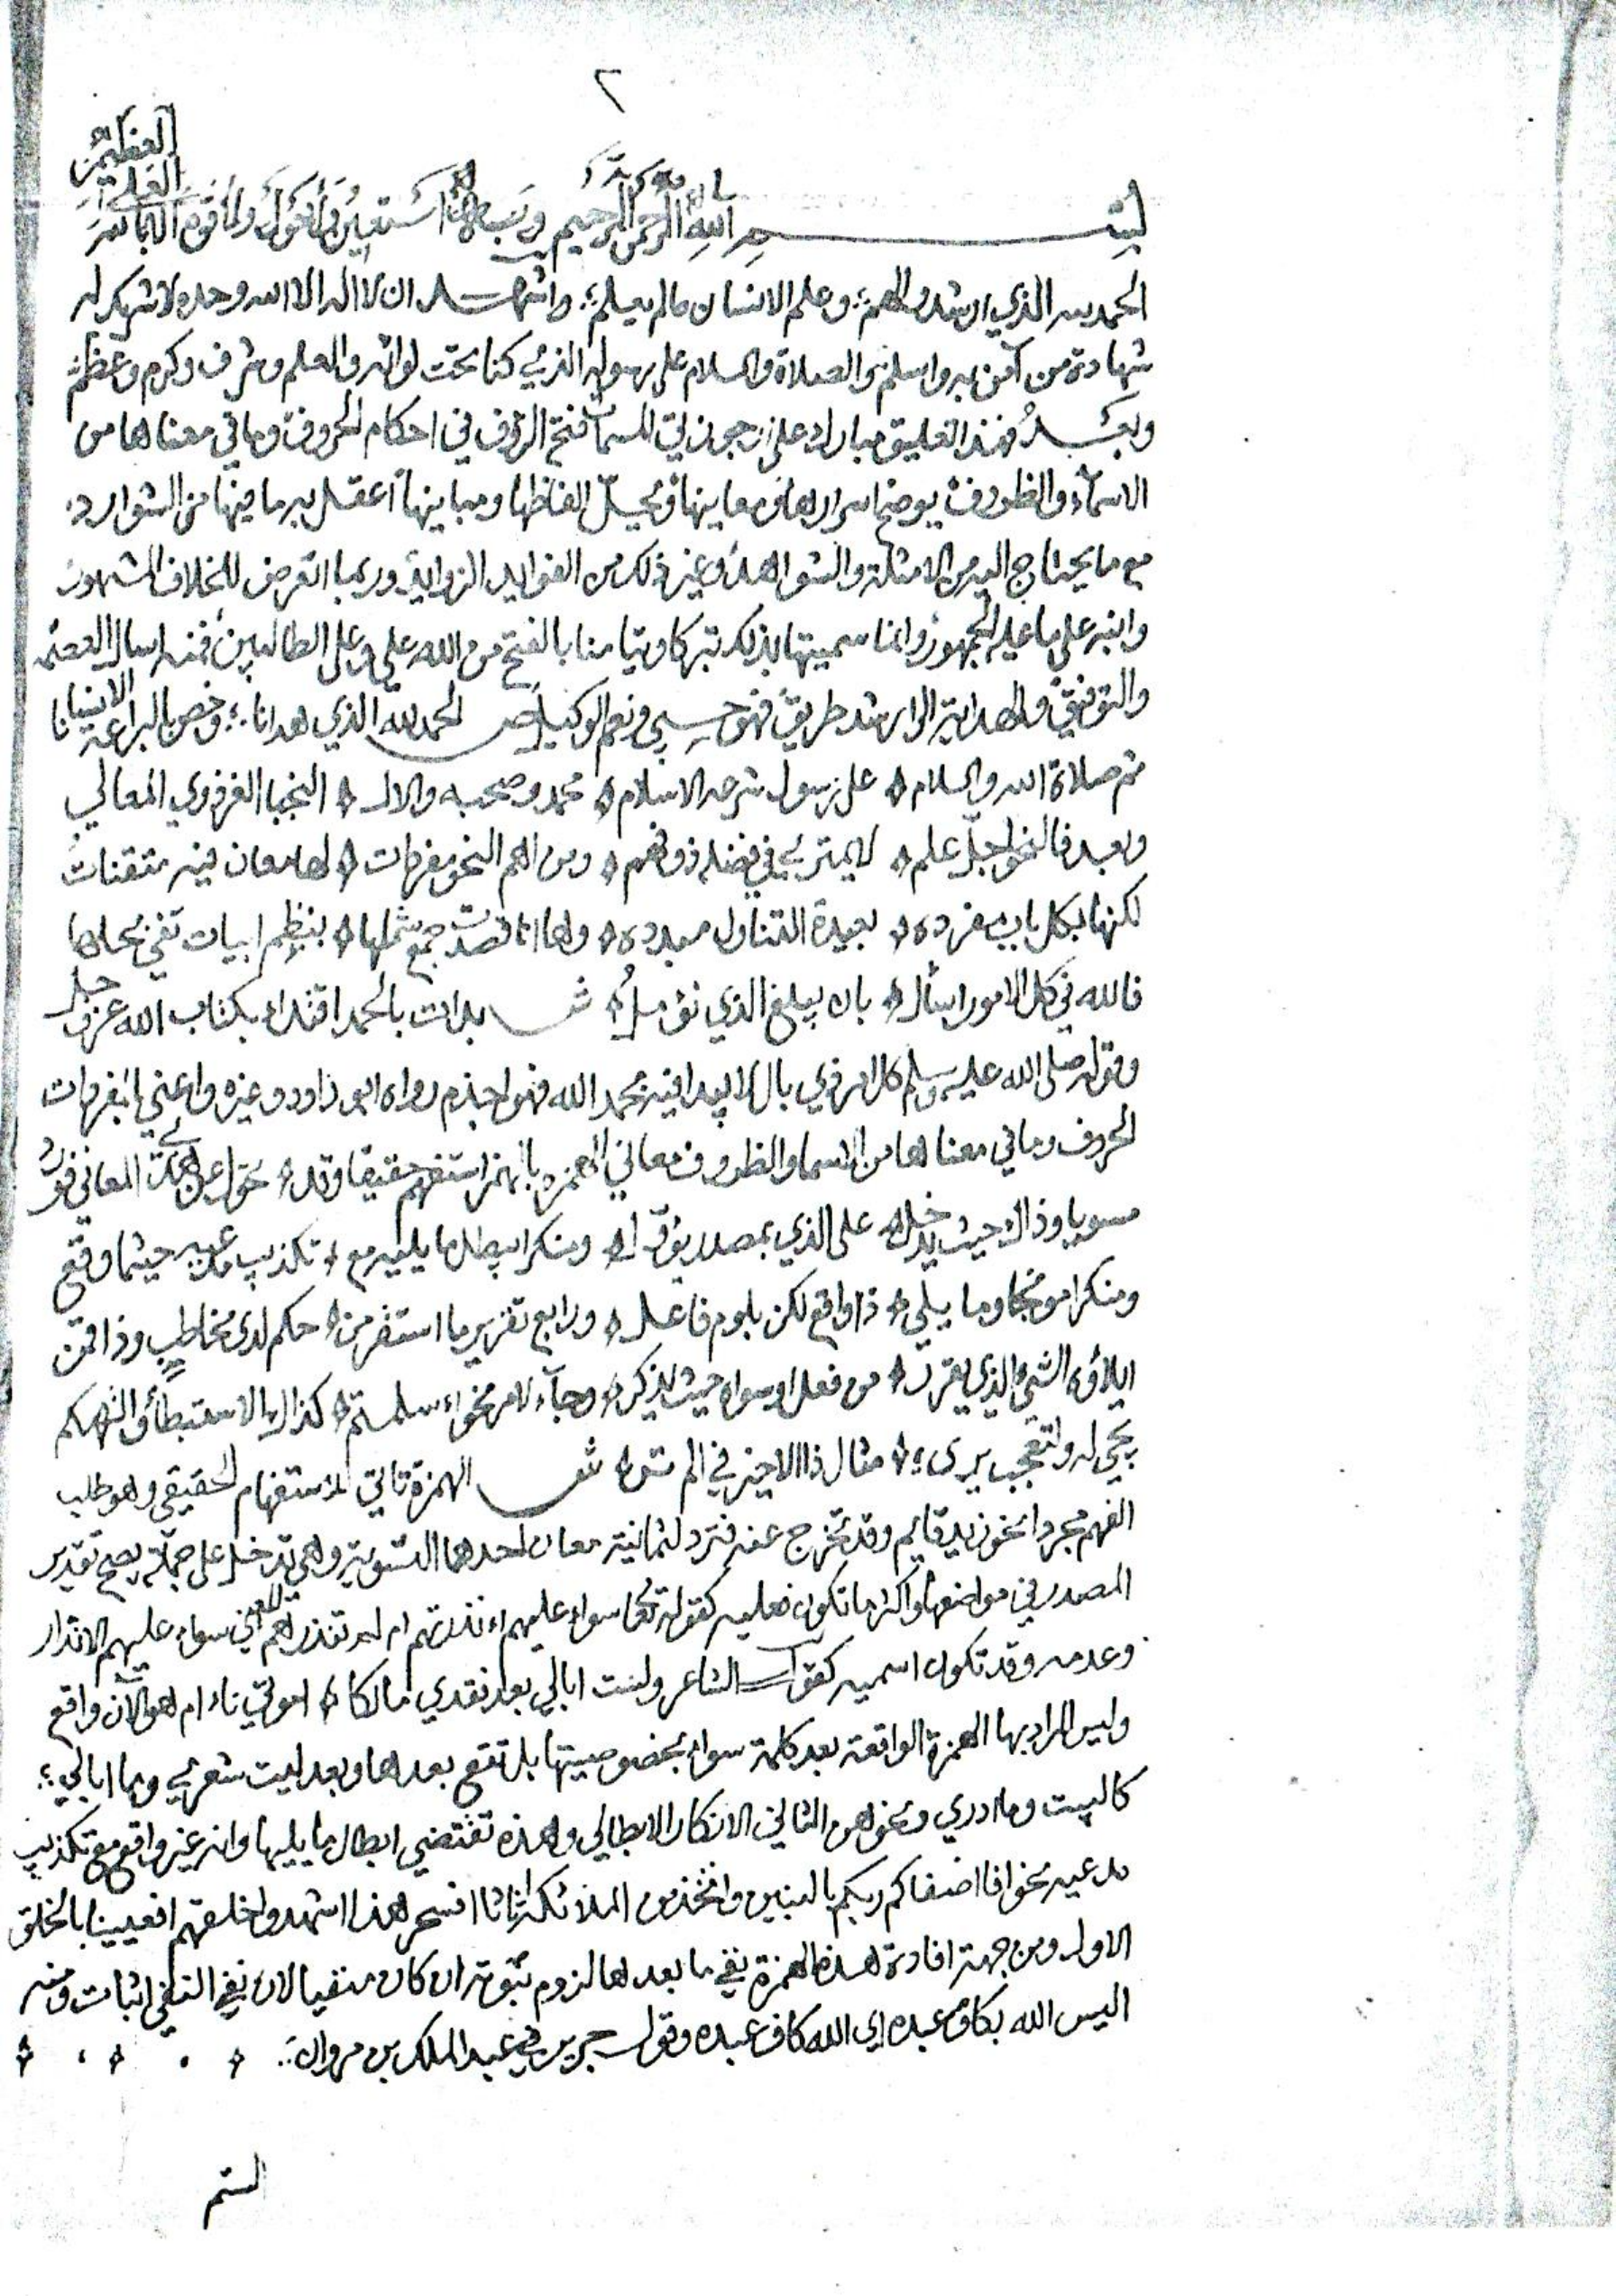 ٢
بسم الله الرحمن الرحيم وبه استعين ولا حول ولا قوة الا بالله
العلي
العظيم
الحمد لله الذي ارشد والهم وعلم الانسان ما لم يعلم واشهد ان لا اله الا الله وحده لا شريك له
شهادة من آمن به واسلم والصلاة والسلام على رسوله الذي كنا تحت لوائه والعلم وشرف وكرم وعظم
وبعد فهذا تعليق مبارك على ارجوزتي المسماة فتح الرؤف في احكام الحروف وما في معناها من
الاسماء والظروف يوضح اسرارها ومعانيها ويحل الفاظها ومبانيها اعقل به ما فيها من الشوارد
مع ما يحتاج اليه من الامثلة والشواهد وغير ذلك من الفوايد الزوايد وربما اتعرض للخلاف المشهور
وانبه على ما عليه الجمهور وانما سميتها بذلك تبركا وتيامنا بالفتح من الله علي وعلى الطالبين فمنه اسال العصمه
والتوفيق والهداية الى ارشد طريق فهو حسبي ونعم الوكيل ص الحمد لله الذي هدانا وخص بالبراعة الانسانا
ثم صلاة الله والسلام على رسول شرعه الاسلام محمد وصحبه والال النجبا الغر ذوي المعالي
وبعد فالنحو اجل علم لا يمتري في فضله ذو فهم ومن اهم النحو مفردات لها معان فيه متقنات
لكنها بكل باب مفرده بعيدة التناول مبدده وها انا قصدت جمع شملها بنظم ابيات تفي بحلها
فالله في كل الامور اسأل بان يبلغ الذي نؤمل ش بدات بالحمد اقتداء بكتاب الله عز وجل
وقوله صلى الله عليه وسلم كل امر ذي بال لا يبدا فيه بحمد الله فهو اجذم رواه ابو داود وغيره واعني بالمفردات
الحروف وما في معناها من الاسما والظروف معاني الهمزه بالهمز استفهم حقيقا وقد تحول على المعاني فورد
مسويا وذاك حيث يدخل على الذي بمصدر يؤول ومنكرا يبطل ما يليه مع تكذيب مدعيه حيثما وقع
ومنكرا موبخا وما يلي ذا واقع لكن بلوم فاعل ورابع تقرير ما استقر من حكم لدى مخاطب وذا قمن
ايلاؤه الشيء الذي يقرر من فعل او سواه حيث يذكر وجاء لامر نحو ءاسلمتم كذاك الاستبطأ والتهكم
يجي له ولتعجب يرى مثال ذا الاخير في الم تر ش الهمزة تاتي للاستفهام الحقيقي وهو طلب
الفهم مجردا نحو ازيد قايم وقد تخرج عنه فترد لثمانية معان احدها التسوية وهي تدخل على جملة يصح تقدير
المصدر في مواضعها واكثر ما تكون فعليه كقوله تعا سواء عليهم ءانذرتهم ام لم تنذرهم المعنى سواء عليهم الانذار
وعدمه وقد تكون اسميه كقول الشاعر ولست ابالي بعد فقدي مالكا اموتي ناء ام هو الآن واقع
وليس المراد بها الهمزة الواقعة بعد كلمة سواء بخصوصيتها بل تقع بعدها وبعد ليت شعري وما ابالي
كالبيت وما ادري ونحوهن الثاني الانكار الابطالي وهذه تقتضي ابطال ما يليها وانه غير واقع مع تكذيب
مدعيه نحو افاصفاكم ربكم بالبنين واتخذ من الملائكة اناثا افسحر هذا اشهدوا خلقهم افعيينا بالخلق
الاول ومن جهة افادة هذه الهمزة نفي ما بعدها لزوم ثبوته ان كان منفيا لان نفي النفي اثبات ومنه
اليس الله بكاف عبده اي الله كاف عبده وقول جرير في عبد الملك بن مروان
الستم